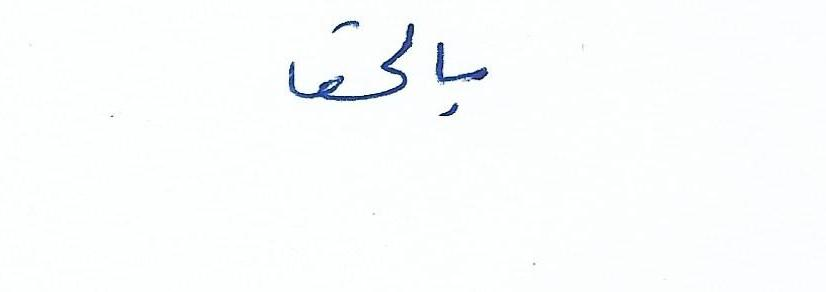 بالحقا